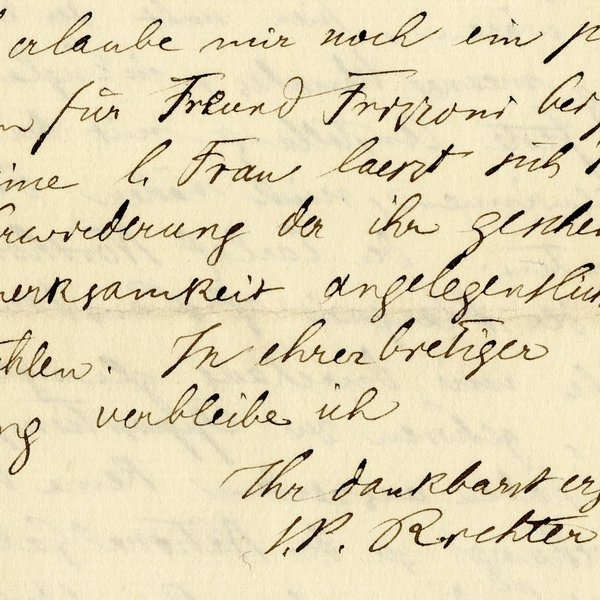 erlaube mir noch ein p
n für Freund Frizzoni bei
ine l. Frau laesst sich
Erwiderung der ihr geschen
merksamkeit angelegentlich
hlen. In ehrerbietiger
ng verbleibe ich
Ihr dankbarst erg
J.P. Richter